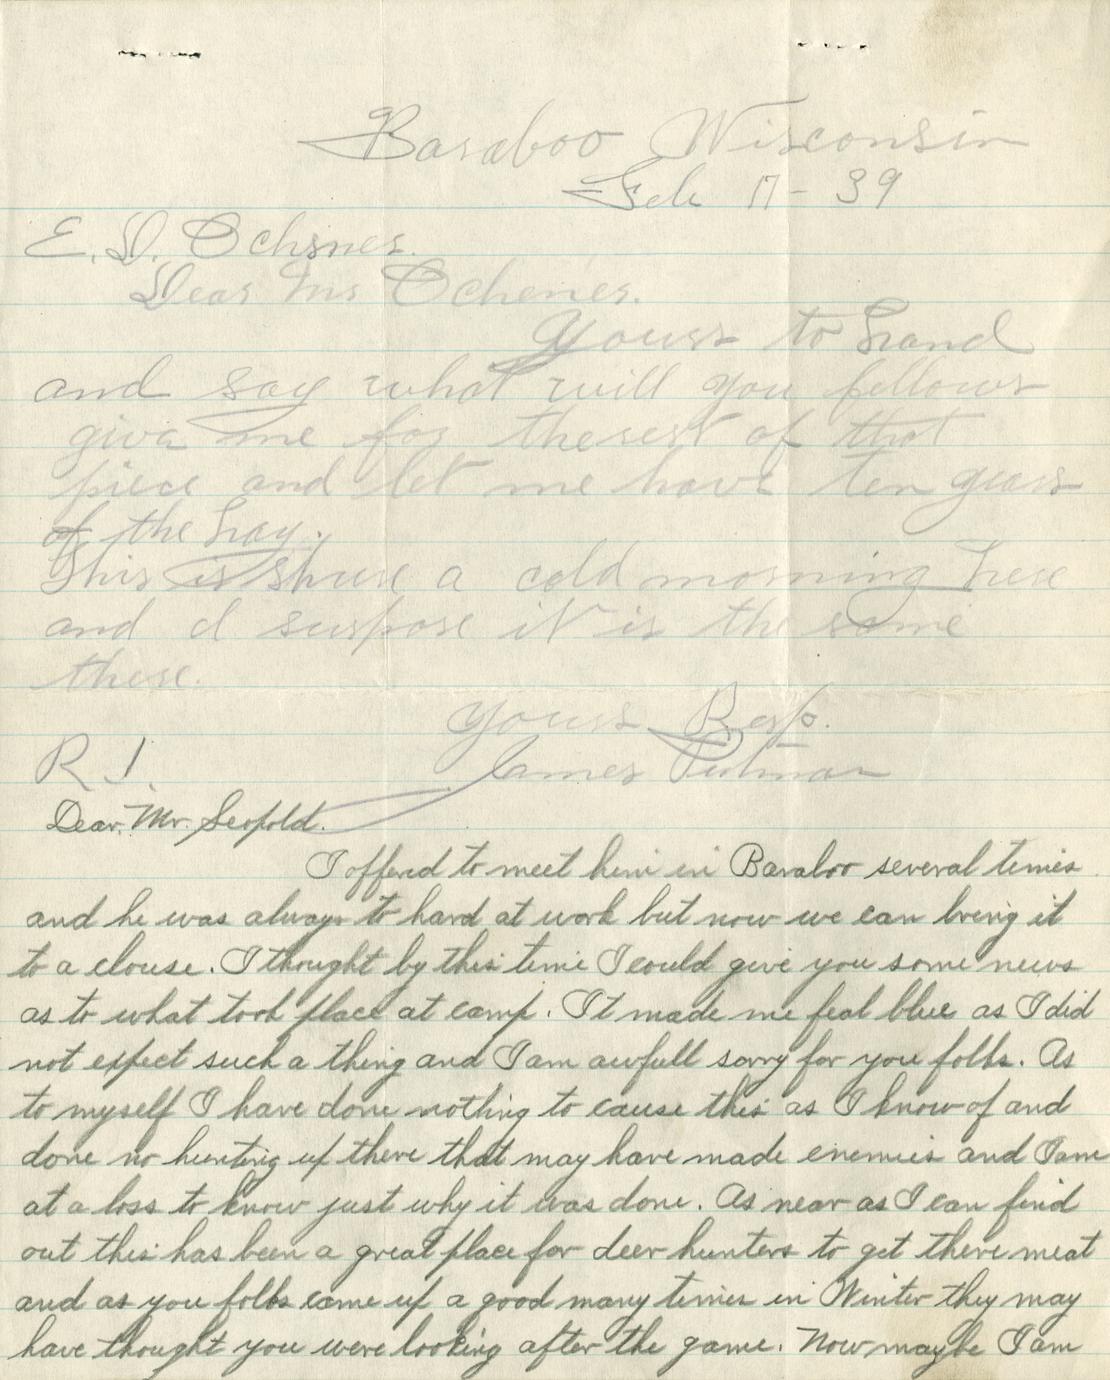 Baraboo Wisconsin
Feb 17 - 39
E. D. Ochsner.
Dear Mr Ochener.
Yours to hand
and say what will you fellows
give me for the rest of that
piece and let me have ten years
of the hay.
This is shure a cold morning here
and I suspose it is the same
there.
Yours Resp.
R 1. James Putman
Dear Mr. Leopold.
I offerd to meet him in Baraboo several times
and he was always to hard at work but now we can bring it
to a clouse. I thought by this time I could give you some news
as to what took place at camp. It made me feal blue as I did
not expect such a thing and I am awfull sorry for you folks. As
to myself I have done nothing to cause this as I know of and
done no hunting up there that may have made enemies and I am
at a loss to know just why it was done. As near as I can find
out this has been a great place for deer hunters to get there meat
and as you folks came up a good many times in Winter they may
have thought you were looking after the game. Now maybe I am